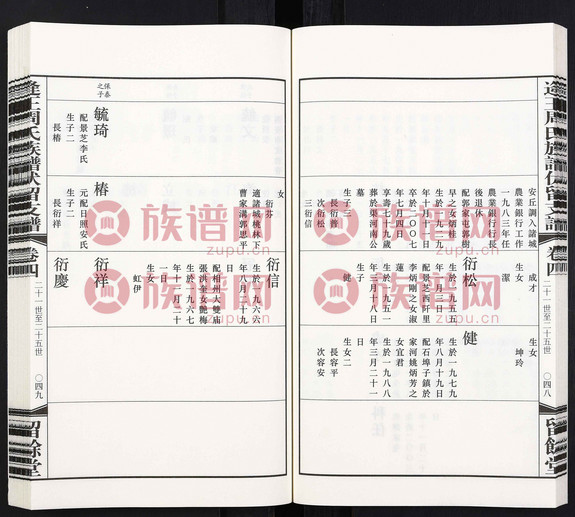 安丘調入諸城
農業銀行工作
一九八三年任
農業銀行行長
後退休
配郭家屯郭樹
早之女炳桂
生於一九二九
年十月十一日
卒於二〇〇七
年七月四日
享壽七十九歲
葬於渠河南公
墓
生子三
長衍善
次衍松
三衍信
成才
生女
潔
衍松
生於一九五五
年三月一日
配景芝西阿里
李炳剛之女淑
蓮
生於一九五一
年三月十八日
生子
健
生女
坤玲
健
生於一九七九
年八月十九日
配石埠子鎮於
家河姚炳芳之
女宜君
生於一九八八
年三月二十一
日
生女二
長容平
次容安
卷四
二十一世至二十五世
〇四八
留餘堂
女衍芬
適諸城桃林下
曹家溝郭思平
衍信
生於一九六六
年八月二十九
日
配相州大雙廟
張洪奎女艷梅
生於一九六七
年十一月二十
一日
生女
虹伊
保泰之子
毓琦
配景芝李氏
生子二
長椿
椿
元配日照安氏
生子二
長衍祥
衍祥
衍慶
卷四
二十一世至二十五世
〇四九
留餘堂
族谱网
zupu.cn
族谱网
zupu.cn
族谱网
zupu.cn
族谱网
zupu.cn